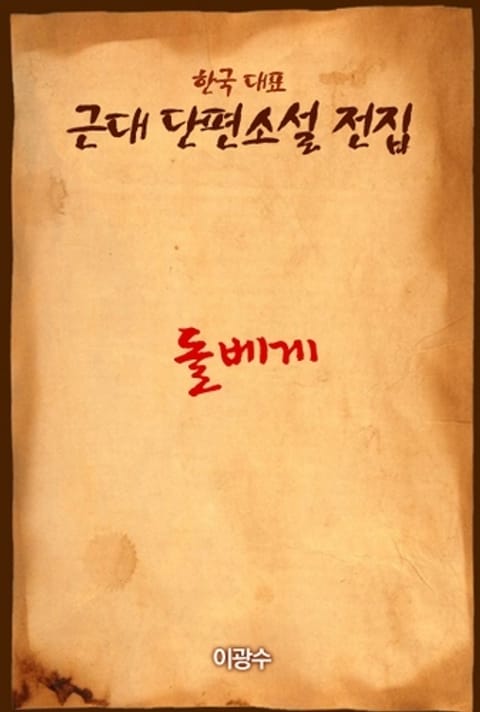 한국 대표
근대 단편소설 전집
돌베게
이광수